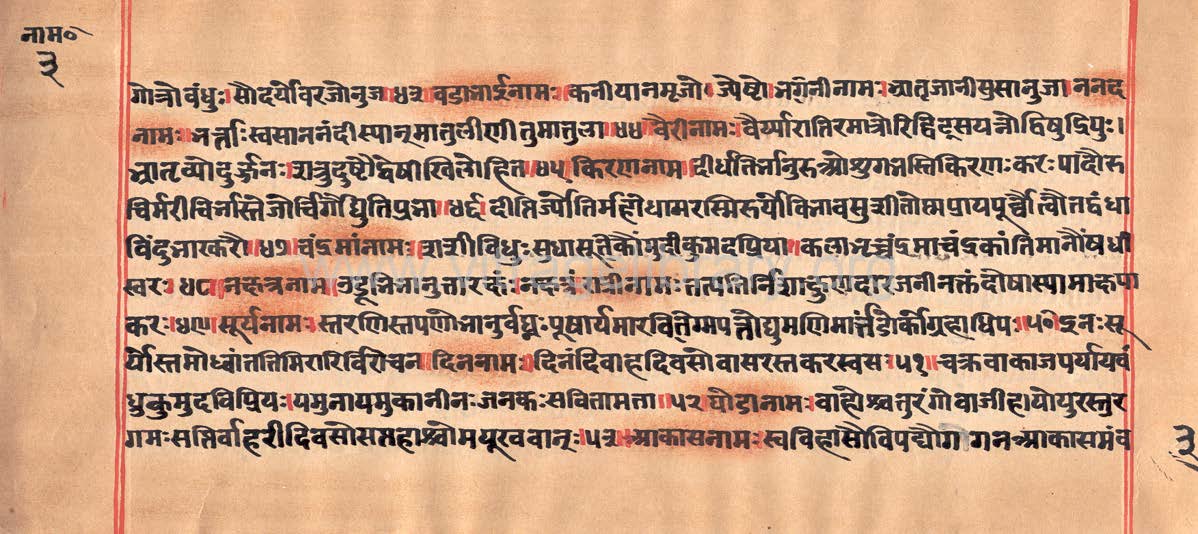 नाम॰
३
गोत्रो बंधुः। सौदर्येवरजोनुज ४३ वडाभाईनामः कनीयानमृजो। ज्येष्टो भगिनीनामः भ्रातृजानीसुसानुजा ननद
नामः भर्त्तः स्वसाननंदीस्यान्मातुलीणीतुमातुला ४४ वैरीनामः वैर्य्यारातिरमात्रोरिद्विट्सयत्नोद्विषुद्रिपुः।
भ्रातृव्यो दुर्ज्जनः। शत्रुदुष्टोद्वेषीखिलोहित ४५ किरणनाम दीधीतिर्भानुरुश्रोशुगभस्तिकिरणः करः पादौरु
चिर्मरीचिर्भास्तेजोर्चिर्गोद्युतिप्रभा ४६ दीप्तिर्ज्योतिर्महोधामरस्मिरुर्योविभावसु शीतोष्मप्रायपूर्व्वौत्नौतदंधा
विंदुभास्करौ ४७ चंद्रमांनामः। शशीविधुः सुधासूतेकौंमुदीकुमदप्रिया कलाभृच्चंद्रमाचंद्रकांतिमानौंषधी
स्वरः ४८ नक्षत्रनाम उडूनिभानुतारक्षः नक्षत्रं रात्रीनामः तत्पतिर्निशाक्षणदारजनीनक्तंदोषास्यामाक्षपा
करः ४९ सूर्यनामः स्तरणिस्तपणोभानुर्वध्नः पूषार्यमारवितिग्मपत्तोद्युमणिर्मार्त्तंडोर्कोग्रहाधिपः ५० इनः सू
र्योस्तमोध्वांततिमिरारिर्विरोचन दिननामः दिनंदिवाहदिवसोवासरस्तकरस्वसः ५१ चक्रवाकाजपर्यायबं
धुकुमुदविप्रियः यमुनायमुकानीनः जनकः सवितामता ५२ घोडानामः वाहोश्वतुरंगोवाजीहायोयुरस्तुर
गमः सप्तिर्वाहरीदिवसोसप्तहाश्वोमयूरववान् ५३ आकासनामः स्वविहासोविपद्यौगगनआकासमंब
३
www.vitragelibrary.org